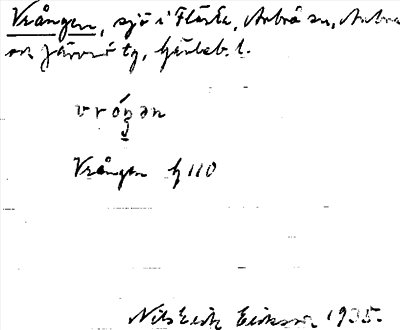 Vrången, sjö i Flästa, Arbrå sn, Arbrå
och Järvsö tg, Gävleb. l.
vrón̥ən
Vrången G 110
Nils Erik Eriksson 1935.